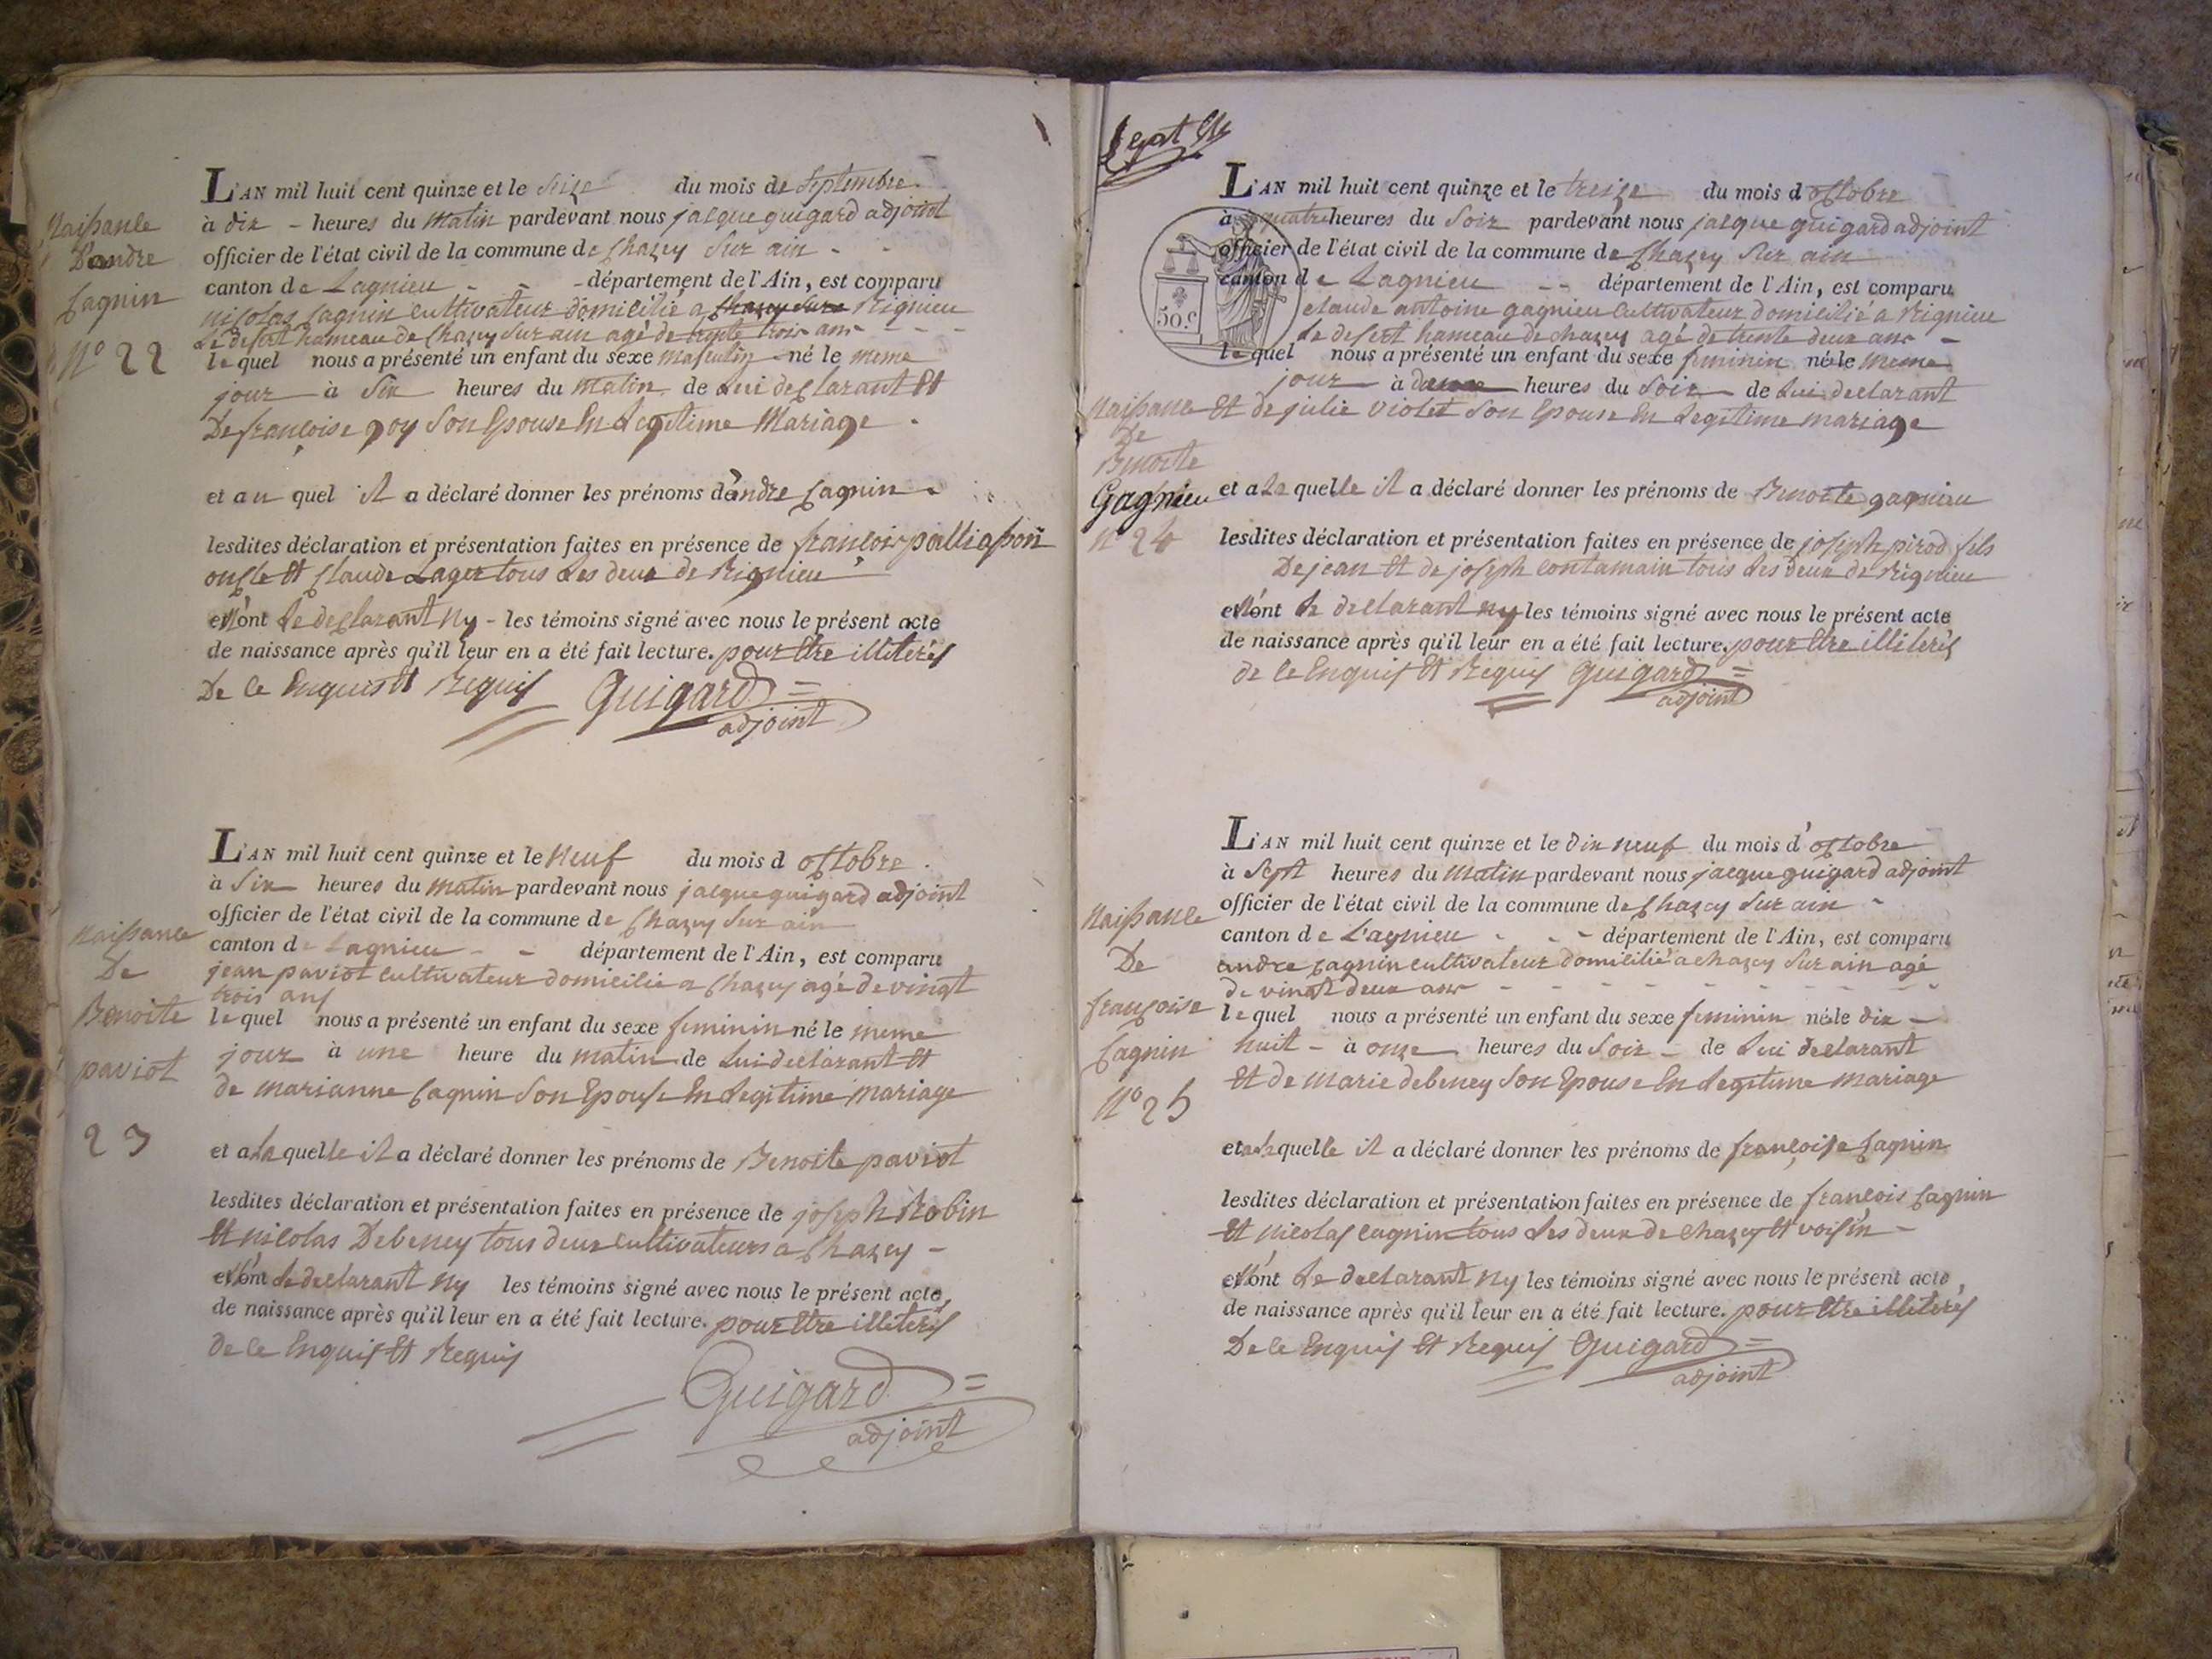 Naissance
D'andre
Cagnin
N° 22
L'AN mil huit cent quinze et le Seize du mois de Septembre
à dix - heures du Matin pardevant nous jacque guigard adjoint
officier de l'état civil de la commune de Chazey Sur ain
canton de Lagnieu - - département de l'Ain, est comparu
nicolas Cagnin cultivateur domicilié a Chazey Sur Rignieu
Le desert hameau de Chazey Sur ain agé de trente trois ans
lequel nous a présenté un enfant du sexe masculin né le meme
jour à Six heures du Matin de Lui declarant Et
De françoise goy Son Epouse En Legitime Mariage
et au quel il a déclaré donner les prénoms d'andre Cagnin
lesdites déclaration et présentation faites en présence de françois
oncle Et Claude Lager tous Les deux de Rignieu
et N'ont Le declarant Ny - les témoins signé avec nous le présent acte
de naissance après qu'il leur en a été fait lecture. pour Etre illiterés
De ce Enquis Et Requis Guigard
adjoint
Naissance
De
Benoite
paviot
23
L'AN mil huit cent quinze et le Neuf du mois d octobre
à Six heures du matin pardevant nous jacque guigard adjoint
officier de l'état civil de la commune de Chazey Sur ain
canton de Lagnieu - - département de l'Ain, est comparu
jean paviot cultivateur domicilié a Chazey agé de vingt
trois ans
lequel nous a présenté un enfant du sexe feminin né le meme
jour à une heure du matin de Lui declarant Et
de marianne Cagnin Son Epouse En Legitime Mariage
et a la quelle il a déclaré donner les prénoms de Benoite paviot
lesdites déclaration et présentation faites en présence de joseph Robin
Et nicolas Debeney tous deux cultivateurs a Chazey -
et N'ont Le declarant Ny les témoins signé avec nous le présent acte
de naissance après qu'il leur en a été fait lecture. pour Etre illiterés
de ce Enquis Et Requis
Guigard
adjoint
Sept
50.c
Naissance
De
Benoite
Gagnieu
N° 24
L'AN mil huit cent quinze et le treize du mois d octobre
à quatre heures du Soir pardevant nous jacque guigard adjoint
officier de l'état civil de la commune de Chazey Sur ain
canton de Lagnieu - - département de l'Ain, est comparu
claude antoine gagnieu cultivateur domicilié a Rignieu
Le desert hameau de chazey agé de trente deux ans -
lequel nous a présenté un enfant du sexe feminin né le meme
jour à heures du Soir de Lui declarant
Et de julie violet Son Epouse En Legitime mariage
et a la quelle il a déclaré donner les prénoms de Benoite gagnieu
lesdites déclaration et présentation faites en présence de joseph pirod fils
De jean Et de joseph contamain tous Les deux de Rignieu
et N'ont Le declarant ny les témoins signé avec nous le présent acte
de naissance après qu'il leur en a été fait lecture. pour Etre illiterés
de ce Enquis Et Requis Guigard
adjoint
Naissance
De
françoise
Cagnin
N° 25
L'AN mil huit cent quinze et le dix neuf du mois d'octobre
à Sept heures du Matin pardevant nous jacque guigard adjoint
officier de l'état civil de la commune de Chazey Sur ain
canton de Lagnieu - - département de l'Ain, est comparu
andre Cagnin cultivateur domicilié a chazey Sur ain agé
de vingt deux ans
lequel nous a présenté un enfant du sexe feminin né le dix -
huit - à onze heures du Soir - de Lui declarant
Et de Marie debeney Son Epouse En Legitime Mariage
et a la quelle il a déclaré donner les prénoms de françoise Cagnin
lesdites déclaration et présentation faites en présence de françois Cagnin
Et Nicolas cagnin tous Les deux de chazey Et voisin -
et N'ont Le declarant Ny les témoins signé avec nous le présent acte
de naissance après qu'il leur en a été fait lecture. pour Etre illiterés
De ce Enquis Et Requis Guigard
adjoint